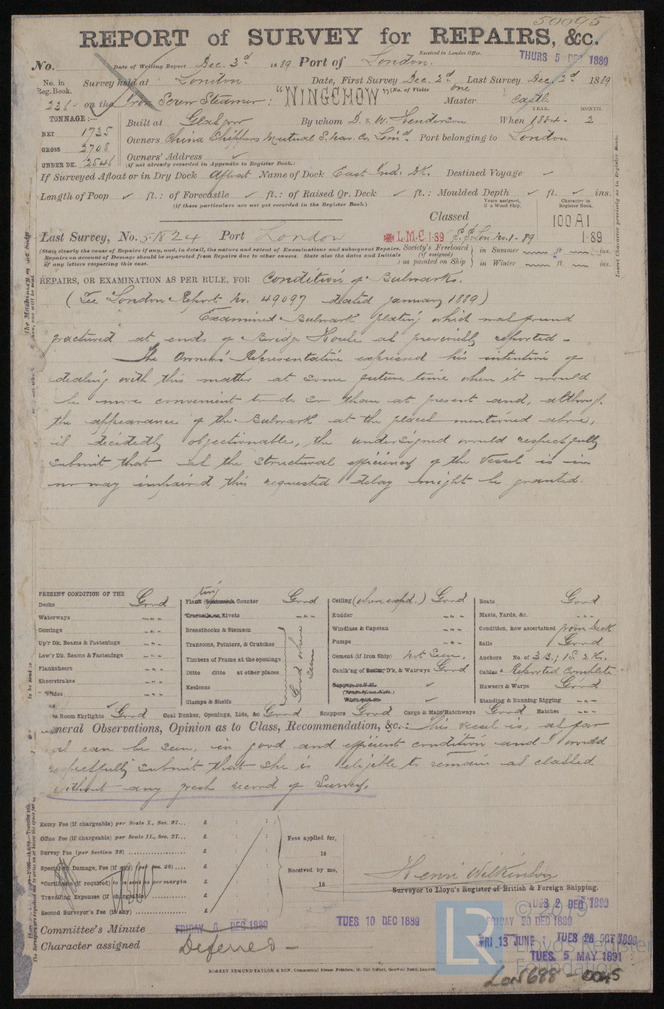 50095
REPORT of SURVEY for REPAIRS, &c.
Received in London Office, THURS 5 DEC 1889
No. Date of Writing Report Dec. 3d 1889 Port of London.
No. in Reg. Book. Survey held at London Date, First Survey Dec. 2d Last Survey Dec. 2d 1889
(No. of Visits one
226 on the Iron Screw Steamer: "NINGCHOW" Master Castle
TONNAGE:— YEAR. MONTH
NET 1735 Built at Glasgow By whom D. & W. Henderson When 1884 - 2
GROSS 2708 Owners China Shippers Mutual S. Nav. Co. Limd. Port belonging to London
UNDER DK. 2546 Owners' Address
(if not already recorded in Appendix to Register Book.)
If Surveyed Afloat or in Dry Dock Afloat Name of Dock East Ind. Dk. Destined Voyage
Length of Poop ft.: of Forecastle ft.: of Raised Qr. Deck ft.: Moulded Depth ft. ins.
(if these particulars are not yet recorded in the Register Book.)
Years assigned, if a Wood Ship. Character in Register Book.
Classed 100A1
Last Survey, No. 51824 Port London L.M.C 1·89 1·89
Society's Freeboard (if assigned) as painted on Ship in Summer ft. ins. in Winter ft. ins.
REPAIRS, OR EXAMINATION AS PER RULE, FOR Condition of Bulwark.
(See London Report No. 49097 dated January 1889)
Examined Bulwark plating which was found
fractured at ends of Bridge House as previously reported -
The Owners' Representative expressed his intention of
dealing with this matter at some future time when it would
be more convenient to do so than at present and, although
the appearance of the Bulwark at the places mentioned above,
is decidedly objectionable, the undersigned would respectfully
submit that as the structural efficiency of the Vessel is in
no way impaired this requested delay might be granted.
PRESENT CONDITION OF THE
Decks Good
Waterways
Comings
Up'r Dk. Beams & Fastenings
Low'r Dk. Beams & Fastenings
Planksheers
Sheerstrakes
Counter Good
Rivets
Breasthooks & Stemson
Transoms, Pointers, & Crutches
Timbers of Frame at the openings
Ditto ditto at other places
Keelsons
Clamps & Shelfs
Good where seen
Ceiling (where seen) Good
Rudder
Windlass & Capstan
Pumps
Cement (if Iron Ship) not seen.
Caulking of D'k, & Waterways Good
Boats Good
Masts, Yards, &c.
Condition, how ascertained from deck
Sails Good
Anchors No. of 3 B.; 1 S. 2 K.
Cables Reported Complete
Hawsers & Warps Good
Standing & Running Rigging
Room Skylights Good Coal Bunker, Openings, Lids, &c Good Scuppers Good Cargo & Main Hatchways Good Hatches
General Observations, Opinion as to Class, Recommendation, &c.: This vessel is, as far
as can be seen, in good and efficient condition and I would
respectfully submit that she is eligible to remain as classed
without any fresh record of Survey.
Entry Fee (if chargeable) per Scale I., Sec. 27... £
Office Fee (if chargeable) per Scale II., Sec. 27... £
Survey Fee (per Section 28) £
Special Damage, Fee (if any) (per Sec. 28) £
Certificate (if required) to be sent as per margin £
Travelling Expenses (if chargeable) £
Second Surveyor's Fee (if any) £
Fees applied for,
18
Received by me,
18
Henri Wilkinson
Surveyor to Lloyd's Register of British & Foreign Shipping.
Committee's Minute FRIDAY 6 DEC 1889 TUES 10 DEC 1889
Character assigned Deferred
FRIDAY 20 DEC 1889
FRI 13 JUNE
TUES 28 OCT 1890
TUES. 5 MAY 1891
LR
© 2019
Lloyd's Register
Foundation
LON688-0045